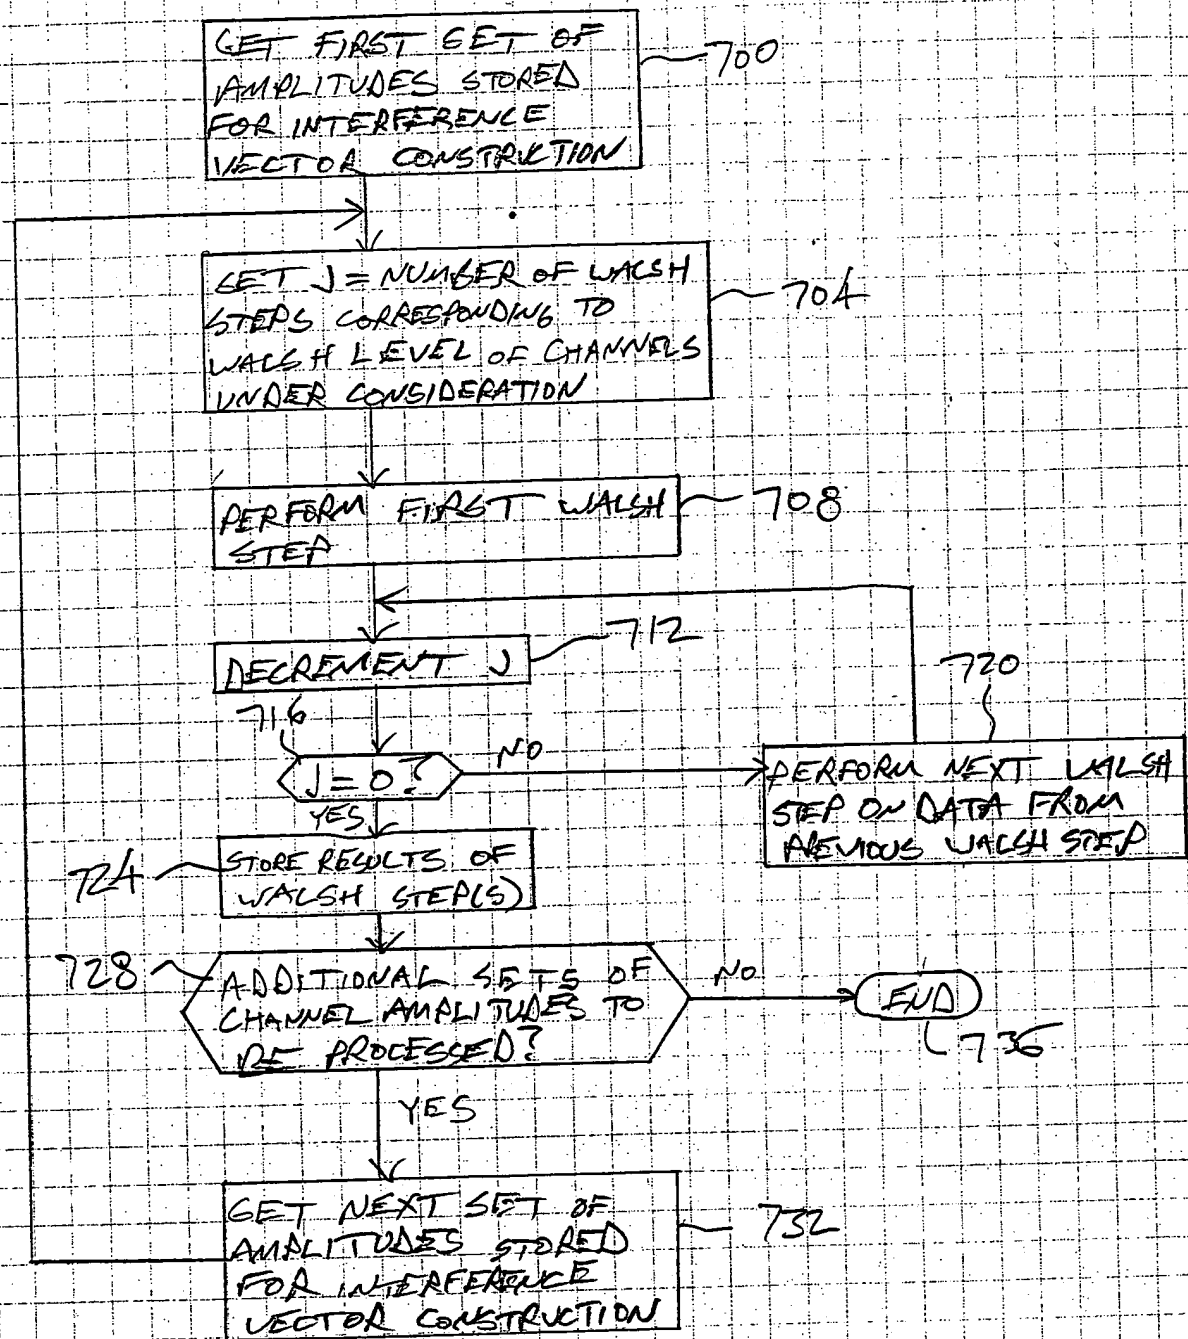 GET FIRST SET OF
AMPLITUDES STORED
FOR INTERFERENCE
VECTOR CONSTRUCTION
700
SET J = NUMBER OF WALSH
STEPS CORRESPONDING TO
WALSH LEVEL OF CHANNELS
UNDER CONSIDERATION
704
PERFORM FIRST WALSH
STEP
708
DECREMENT J
712
716
J = 0?
NO
YES
720
PERFORM NEXT WALSH
STEP ON DATA FROM
PREVIOUS WALSH STEP
724
STORE RESULTS OF
WALSH STEP(S)
728
ADDITIONAL SETS OF
CHANNEL AMPLITUDES TO
BE PROCESSED?
NO
END
736
YES
GET NEXT SET OF
AMPLITUDES STORED
FOR INTERFERENCE
VECTOR CONSTRUCTION
732